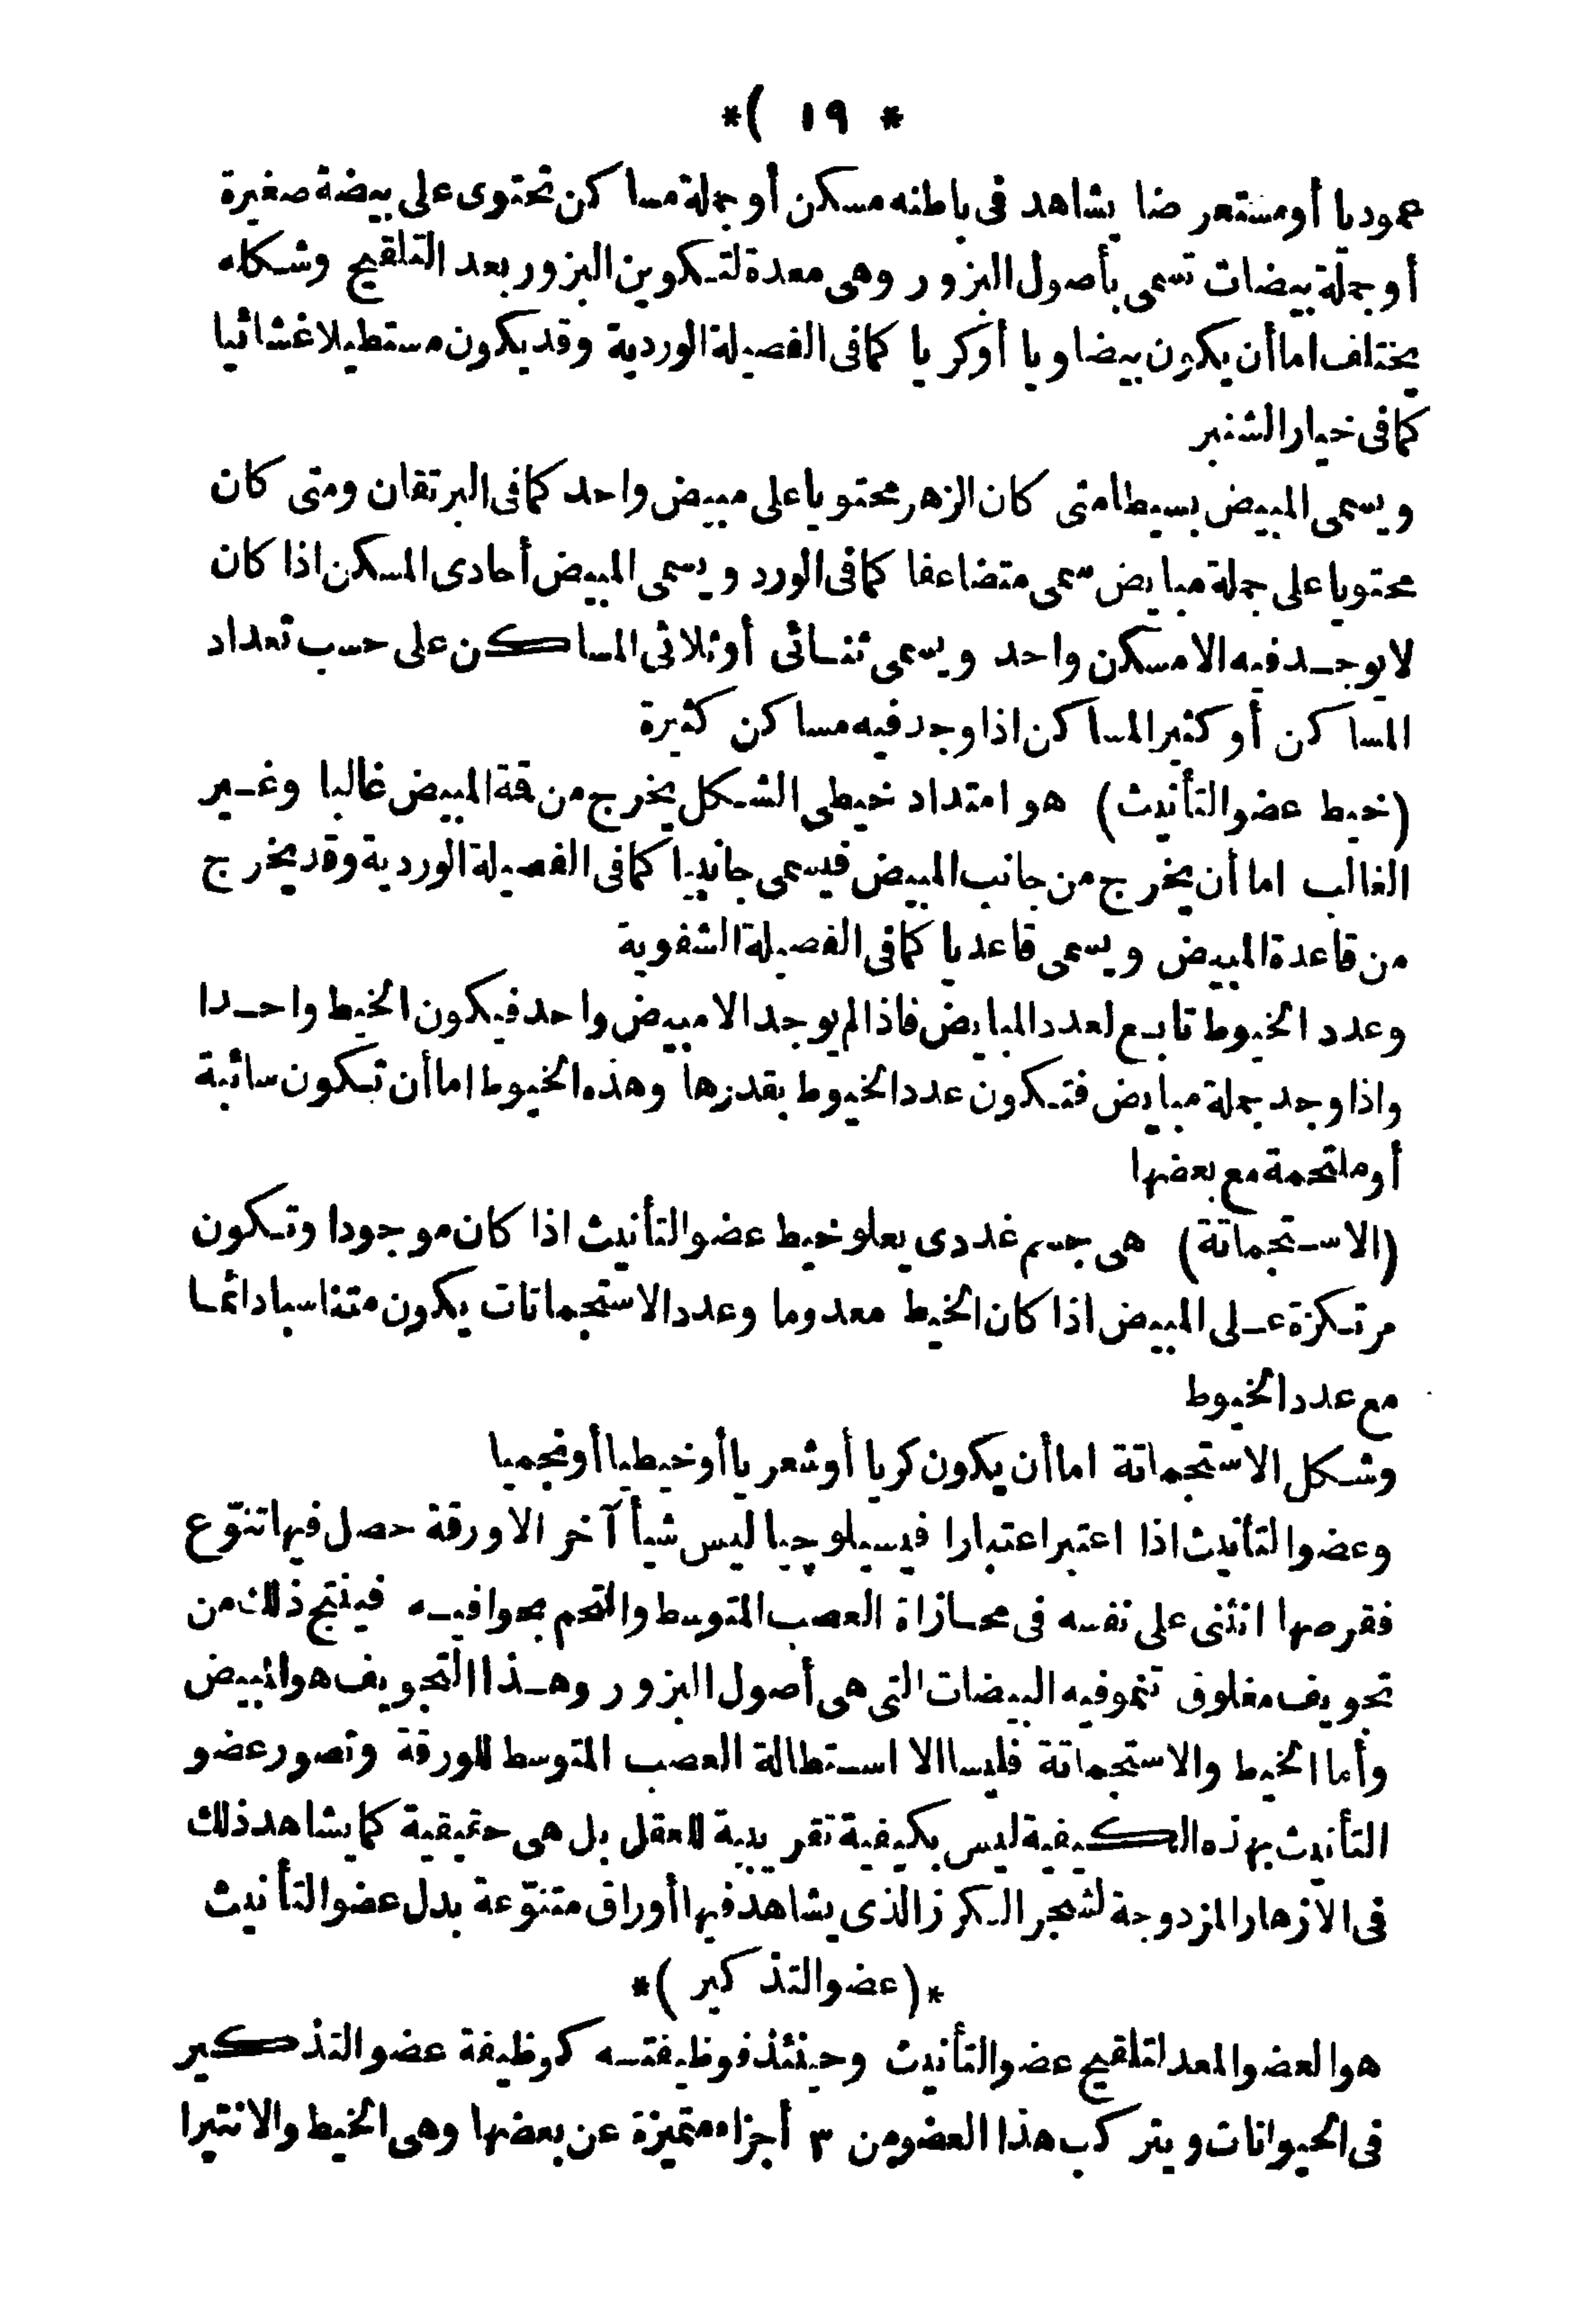 * ١٩ )*
عموديا أومستعرضا يشاهد فى باطنه مسكن أوجملة مساكن تحتوى على بيضة صغيرة
أوجملة بيضات تسمى بأصول البزور وهى معدة لتكوين البزور بعد التلقيح وشكله
يختلف اما أن يكون بيضاويا أوكريا كما فى الفصيلة الوردية وقد يكون مستطيلا غشائيا
كما فى خيار الشنبر
ويسمى المبيض بسيطا متى كان الزهر محتويا على مبيض واحد كما فى البرتقان ومتى كان
محتويا على جملة مبايض سمى متضاعفا كما فى الورد ويسمى المبيض أحادى المسكن اذا كان
لا يوجد فيه الا مسكن واحد ويسمى ثنائى أوثلاثى المساكن على حسب تعداد
المساكن أوكثير المساكن اذا وجد فيه مساكن كثيرة
(خيط عضو التأنيث) هو امتداد خيطى الشكل يخرج من قة المبيض غالبا وغير
الغالب اما أن يخرج من جانب المبيض فيسمى جانبيا كما فى الفصيلة الوردية وقد يخرج
من قاعدة المبيض ويسمى قاعديا كما فى الفصيلة الشفوية
وعدد الخيوط تابع لعدد المبايض فاذا لم يوجد الا مبيض واحد فيكون الخيط واحدا
واذا وجد جملة مبايض فتكون عدد الخيوط بقدرها وهذه الخيوط اما أن تكون سائبة
أوملتحمة مع بعضها
(الاستجماتة) هى جسم غددى يعلو خيط عضو التأنيث اذا كان موجودا وتكون
مرتكزة على المبيض اذا كان الخيط معدوما وعدد الاستجماتات يكون متناسبا دائما
مع عدد الخيوط
وشكل الاستجماتة اما أن يكون كريا أوشعريا أوخيطيا أونجميا
وعضو التأنيث اذا اعتبر اعتبارا فيسيلوجيا ليس شيأ آخر الا ورقة حصل فيها تنوّع
فقرصها انثنى على نفسه فى محازاة العصب المتوسط والتحم بحوافيه فينتج ذلك من
تجويف مغلوق تنمو فيه البيضات التى هى أصول البزور وهذا التجويف هو المبيض
وأما الخيط والاستجماتة فليسا الا استطالة العصب المتوسط للورقة وتصور عضو
التأنيث بهذه الكيفية ليس بكيفية تقريبية للعقل بل هى حقيقية كما يشاهد ذلك
فى الازهار المزدوجة لشجر الكرز الذى يشاهد فيها أوراق متنوّعة بدل عضو التأنيث
*(عضو التذكير)*
هو العضو المعد لتلقيح عضو التأنيث وحينئذ فوظيفته كوظيفة عضو التذكير
فى الحيوانات ويتركب هذا العضو من ٣ أجزاء متميزة عن بعضها وهى الخيط والانتيرا